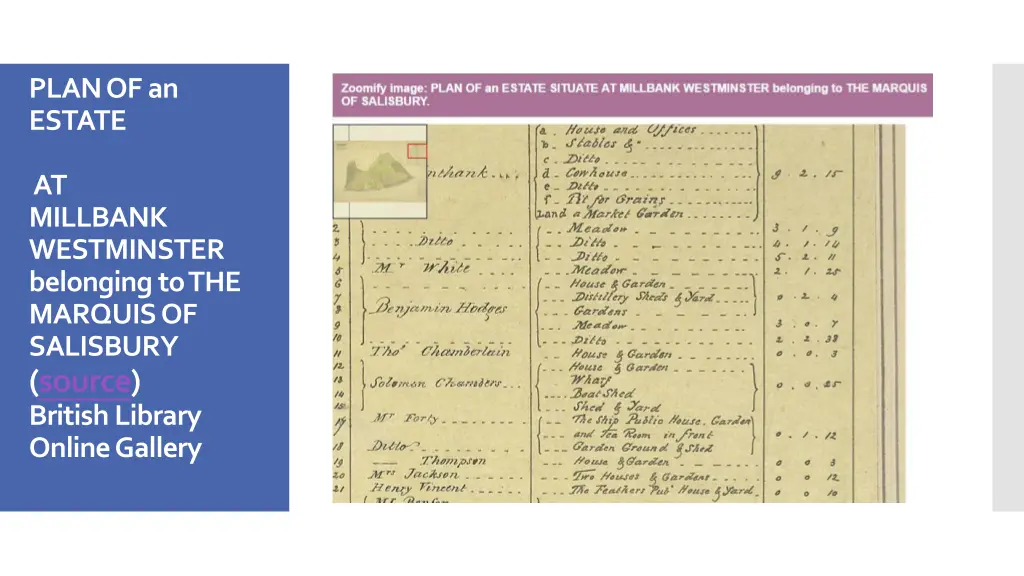 PLAN OF an
ESTATE
AT
MILLBANK
WESTMINSTER
belonging to THE
MARQUIS OF
SALISBURY
(source)
British Library
Online Gallery
Zoomify image: PLAN OF an ESTATE SITUATE AT MILLBANK WESTMINSTER belonging to THE MARQUIS
OF SALISBURY.
a . House and Offices
b . Stables &c
c . Ditto
nthank d . Cowhouse 9 . 2 . 15
e . Ditto
f . Pit for Grains
Land a Market Garden
2 Meadow 3 . 1 . 9
3 Ditto Ditto 4 . 1 . 14
4 Ditto 5 . 2 . 11
5 Mr White Meadow 2 . 1 . 25
6 House & Garden
7 Distillery Sheds & Yard 0 . 2 . 4
8 Benjamin Hodges Gardens
9 Meadow 3 . 0 . 7
10 Ditto 2 . 2 . 38
11 Thos Chamberlain House & Garden 0 . 0 . 3
12 House & Garden
13 Solomon Chambers Wharf 0 . 0 . 25
14 Boat Shed
15 Shed & Yard
17 Mr Forty The Ship Public House, Garden
and Tea Room in front 0 . 1 . 12
18 Ditto Garden Ground & Shed
19 Thompson House & Garden 0 0 3
20 Mrs Jackson Two Houses & Gardens 0 0 12
21 Henry Vincent The Feathers Pub House & Yard 0 0 10